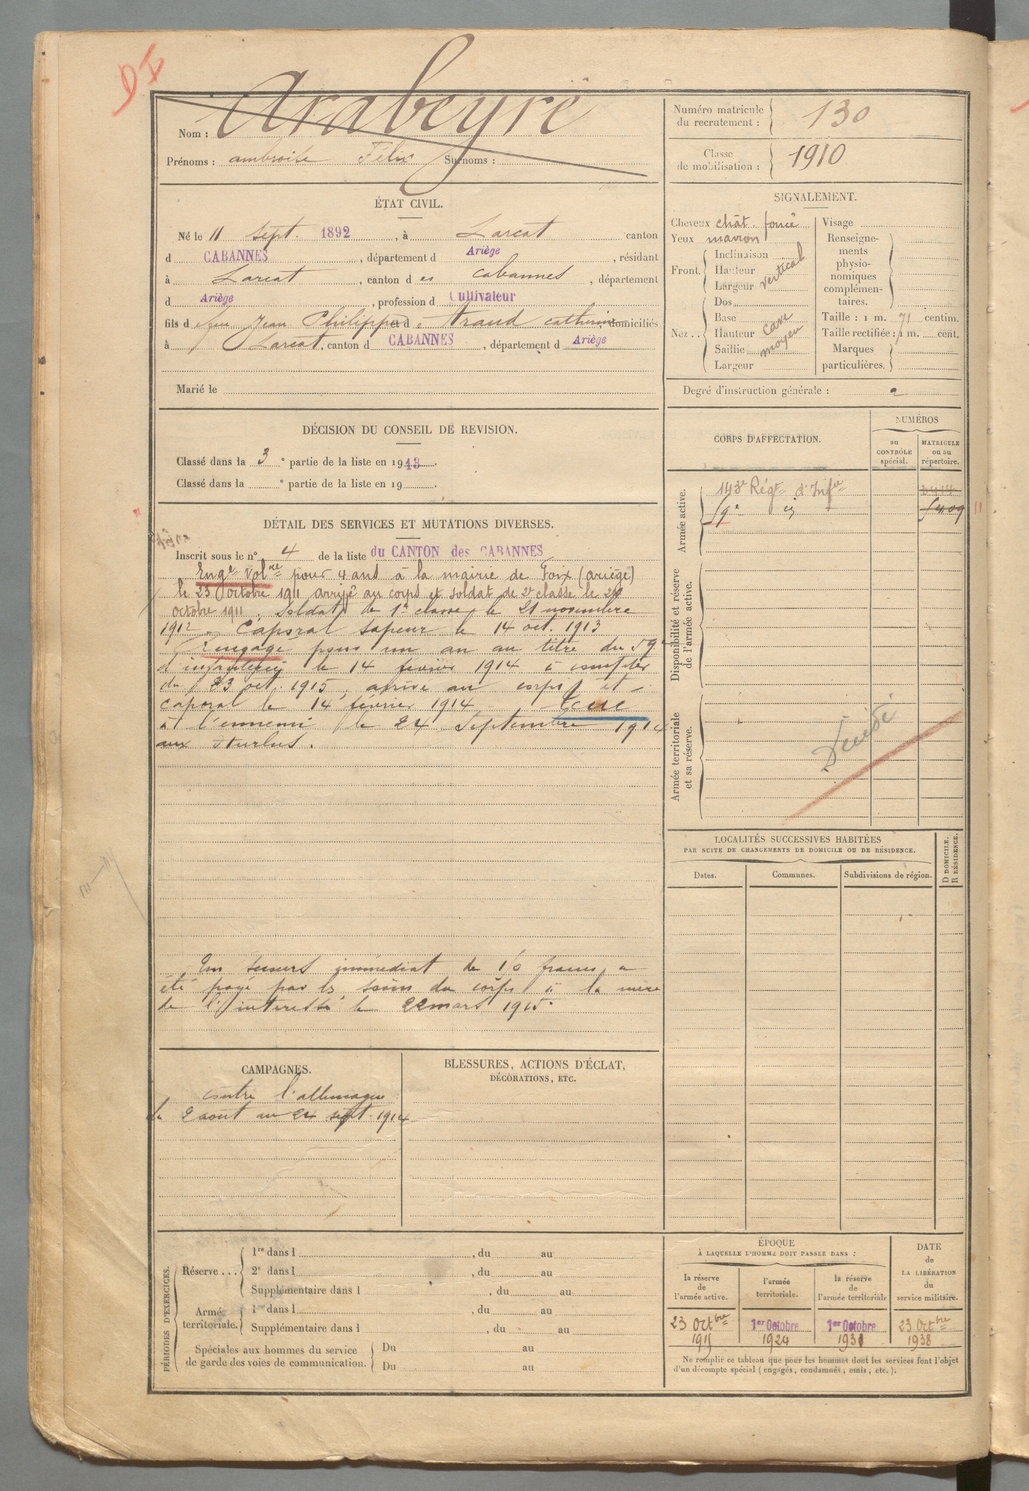 Nom : Arabeyre
Prénoms : ambroise Félix Surnoms :
Numéro matricule du recrutement : 130
Classe de mobilisation : 1910
ÉTAT CIVIL.
Né le 11 sept. 1892, à Larcat canton
d CABANNES, département d Ariège, résidant
à Larcat, canton d es Cabannes, département
d Ariège, profession d Cultivateur
fils d e feu Jean Philippe et d e Araud catherine domiciliés
à Larcat, canton d CABANNES, département d Ariège
Marié le
SIGNALEMENT.
Cheveux chât. foncé
Yeux marron
Front. Inclinaison
Hauteur
Largeur
vertical
Nez.. Dos
Base
Hauteur
Saillie
Largeur
cave
moyen
Visage
Renseigne-
ments
physio-
nomiques
complémen-
taires.
Taille : 1 m. 71 centim.
Taille rectifiée : 1 m. cent.
Marques
particulières.
Degré d'instruction générale : 2
DÉCISION DU CONSEIL DE REVISION.
Classé dans la 3e partie de la liste en 1913.
Classé dans la e partie de la liste en 19
DÉTAIL DES SERVICES ET MUTATIONS DIVERSES.
Inscrit sous le n° 4 de la liste du CANTON des CABANNES
Engé Volre pour 4 ans à la mairie de Foix (ariège)
le 23 octobre 1911 arrivé au corps et soldat de 2e classe le
octobre 1911. Soldat de 1e classe le 21 novembre
1912. Caporal sapeur le 14 oct. 1913
Rengagé pour un an au titre du 59e
d'infanterie le 14 février 1914 à compter
du 23 oct. 1915, arrivé au corps et
caporal le 14 février 1914. Tué
à l'ennemi le 24 Septembre 1914
aux Hurlus.
Un secours immédiat de francs a
été payé par les soins du corps à la mère
de l'intéressé le 22 mars 1915.
CORPS D'AFFECTATION.
NUMÉROS
au
CONTRÔLE
spécial.
MATRICULE
ou au
répertoire.
Armée active.
143e Régt d'Infie
59e id
Disponibilité et réserve
de l'armée active.
Armée territoriale
et sa réserve.
Décédé
LOCALITÉS SUCCESSIVES HABITÉES
PAR SUITE DE CHANGEMENTS DE DOMICILE OU DE RÉSIDENCE.
Dates.
Communes.
Subdivisions de région.
D DOMICILE.
R RÉSIDENCE.
CAMPAGNES.
contre l'allemagne
du 2 août au 24 sept. 1914
BLESSURES, ACTIONS D'ÉCLAT,
DÉCORATIONS, ETC.
PÉRIODES D'EXERCICES.
Réserve...
1re dans l , du au
2e dans l , du au
Supplémentaire dans l , du au
Armée
territoriale.
1re dans l , du au
Supplémentaire dans l , du au
Spéciales aux hommes du service
de garde des voies de communication.
Du au
Du au
ÉPOQUE
À LAQUELLE L'HOMME DOIT PASSER DANS :
la réserve
de
l'armée active.
l'armée
territoriale.
la réserve
de
l'armée territoriale
DATE
de
LA LIBÉRATION
du
service militaire.
23 octbre 1915
1er Octobre 1924
1er Octobre
23 octbre 1938
Ne remplir ce tableau que pour les hommes dont les services font l'objet
d'un décompte spécial (engagés, condamnés, omis, etc.).